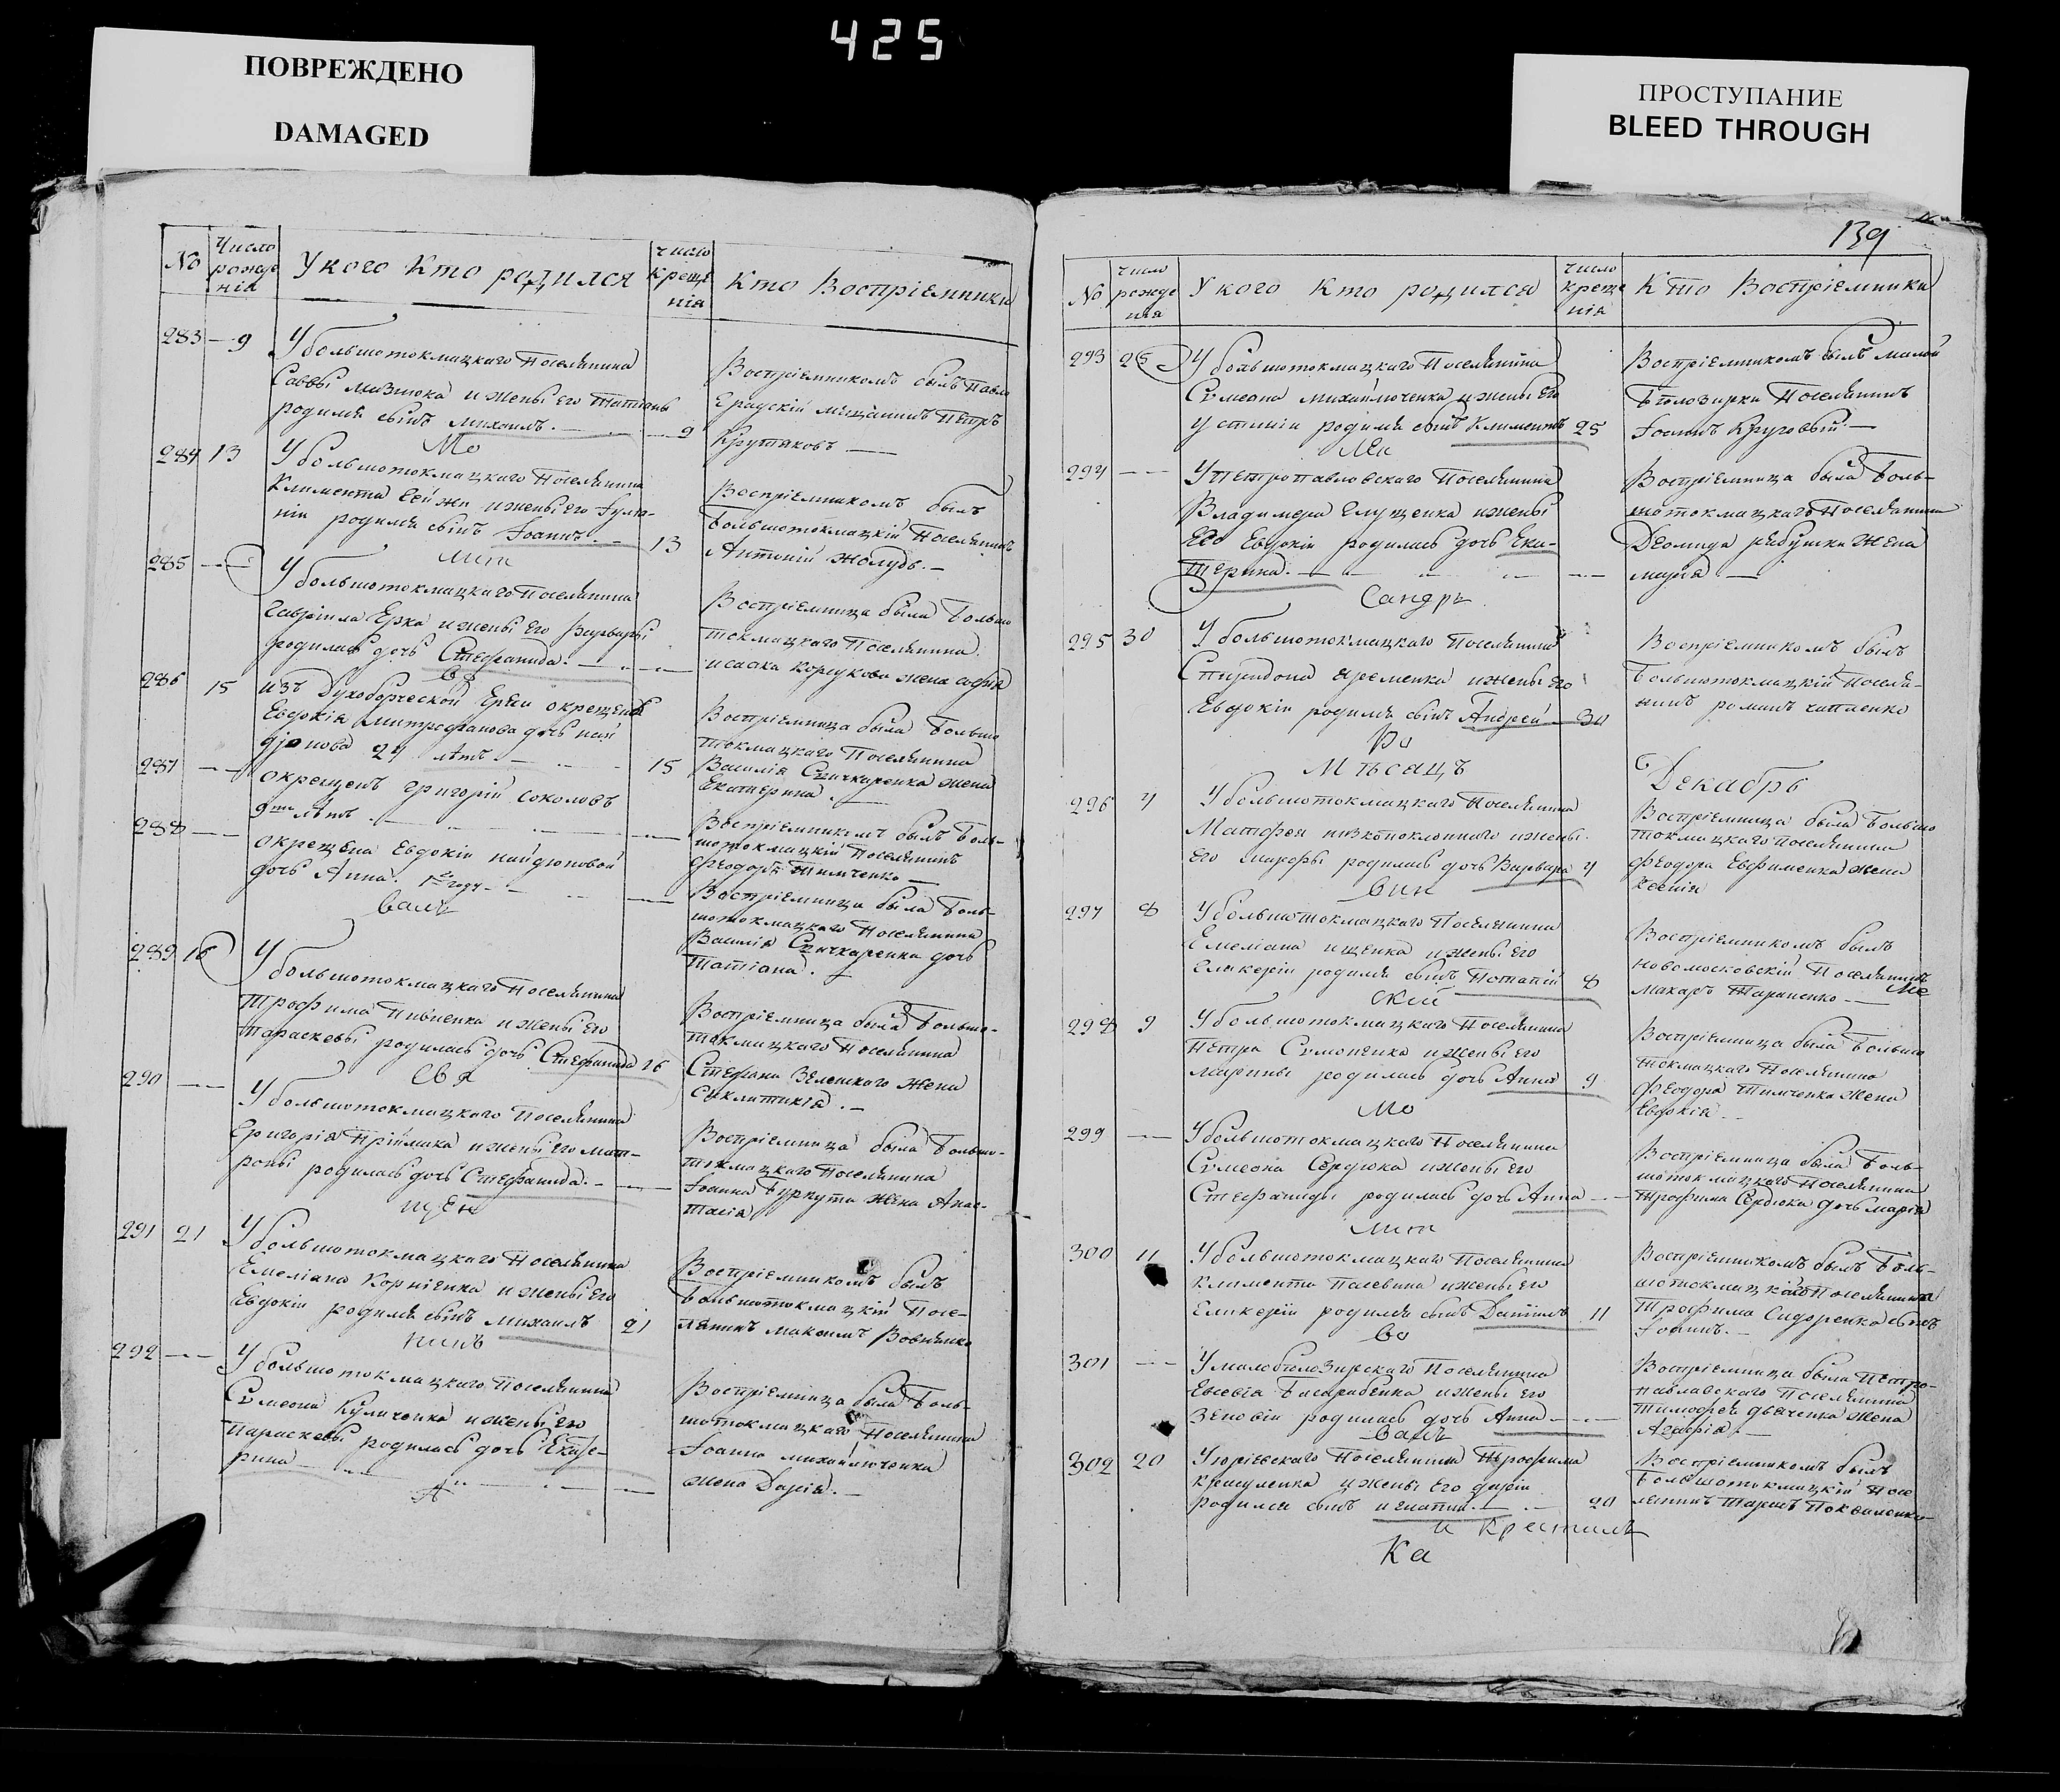 425
ПОВРЕЖДЕНО
DAMAGED
ПРОСТУПАНИЕ
BLEED THROUGH
No
Число рожде нія
У кого Кто родился
число креще нія
Кто Воспріемники
283 — 9
У большотокмацкаго Поселянина
Саввы Мизюка и жены его Татіаны
родился сынъ Михаилъ. — 9
Воспріемникомъ былъ Павло
градскій мещанинъ Петръ
Крутяковъ —
Мо
284 13
У большотокмацкаго Поселянина
Климента и жены его Іулiа-
ніи родился сынъ Іоаннъ. — 13
Воспріемникомъ былъ
Большотокмацкій Поселянинъ
Антоній Жолудь. —
лита
285 —
У большотокмацкаго Поселянина
Гавріила Ерка и жены его Варвары
родилась дочь Стефанида. —
Воспріемница была Большо
токмацкаго Поселянина
исаака Коржукова жена софія
св
286 15
изъ Духоборческой Ереси окрещена
Евдокія Митрофанова дочь най
дюнова 24 летъ — 15
Воспріемница была Большо
токмацкаго Поселянина
Василія Свичкаренка жена
Екатерина
287 —
окрещенъ Григорій Соколовъ
9ти летъ. —
Воспріемникомъ былъ Боль-
шотокмацкій Поселянинъ
Феодоръ Тимченко —
288 —
окрещена Евдокіи найдюновой
дочь Анна. 1го году —
Воспріемница была Боль-
шотокмацкаго Поселянина
Василія Свичкаренка дочь
Татіана. —
валъ
289 16
У большотокмацкаго Поселянина
Трофима Пивненка и жены его
Параскевы родилась дочь Стефанида 16
Воспріемница была Большо-
токмацкаго Поселянина
Стефана Зеленского жена
Сиклитикія. —
свя
290 —
У большотокмацкаго Поселянина
Григорія Пріймака и жены его Мат-
роны родилась дочь Стефанида. —
Воспріемница была Большо-
токмацкаго Поселянина
Іоанна Буркута жена Анас-
тасія
щен
291 21
У большотокмацкаго Поселянина
Емеліана Корніенка и жены его
Евдокіи родился сынъ Михаилъ 21
Воспріемникомъ былъ
Большотокмацкій Посе-
лянинъ Максимъ Вовненко
никъ
292 —
У большотокмацкаго Поселянина
Симеона Куличенка и жены его
Параскевы родилась дочь Екате-
рина —
Воспріемница была Боль-
шотокмацкаго Поселянина
Іоанна Михайлюченка
жена Дарія. —
А
139
No
число рожде нія
У кого Кто родился
число креще нія
Кто Воспріемники
293 25
У большотокмацкаго Поселянина
Симеона Михайлюченка и жены его
Устиніи родился сынъ Климентъ 25
Воспріемникомъ былъ малой
Белозирки Поселянинъ
Іоаннъ Круговый. —
Лек
294 —
У Петропавловскаго Поселянина
Владимера Глущенка и жены
его Евдокіи родилась дочь Ека-
терина. —
Воспріемница была Боль-
шотокмацкаго Поселянина
Деомида Рябушки жена
марія —
сандръ
295 30
У большотокмацкаго Поселянина
Спиридона Яременка и жены его
Евдокіи родился сынъ Андрей — 30
Воспріемникомъ былъ
Большотокмацкій Поселя-
нинъ романъ
Ро
Месяцъ Декабрь
296 4
У большотокмацкаго Поселянина
Матфея низкопоклонного и жены
его марфы родилась дочь Варвара 4
Воспріемница была Большо
токмацкаго поселянина
Феодора Евфименка жена
Ксенія
вин
297 8
У большотокмацкаго Поселянина
Емеліана ищенка и жены его
Гликеріи родился сынъ Потапій 8
Воспріемникомъ былъ
новомосковскій Поселянинъ
Макаръ Тараненко —
скій
298 9
У большотокмацкаго Поселянина
Петра Симоненка и жены его
Марины родилась дочь Анна 9
Воспріемница была Большо
токмацкаго Поселянина
Феодора Тимченка жена
Евдокія. —
Мо
299 —
У большотокмацкаго Поселянина
Симеона Сердюка и жены его
Стефаниды родилась дочь Анна —
Воспріемница была Боль-
шотокмацкаго Поселянина
Трофима Сердюка дочь марія
лит
300 11
У большотокмацкаго Поселянина
Климента Палевина и жены его
Гликеріи родился сынъ Даніилъ 11
Воспріемникомъ былъ Боль-
шотокмацкаго Поселянина
Трофима Сидоренка сынъ
Іоаннъ. —
во
301 —
У малобилозирскаго Поселянина
Евсевія Бисарабенка и жены его
Зеновіи родилась дочь Анна —
Воспріемница была Петро-
павловскаго Поселянина
Тимофея дяченка жена
Агафія. —
валъ
302 20
У юріевскаго Поселянина Трофима
и жены его даріи
родился сынъ игнатій. — 20
Воспріемникомъ былъ
Большотокмацкій Посе
лянинъ Тарасъ
и крестилъ
Ка